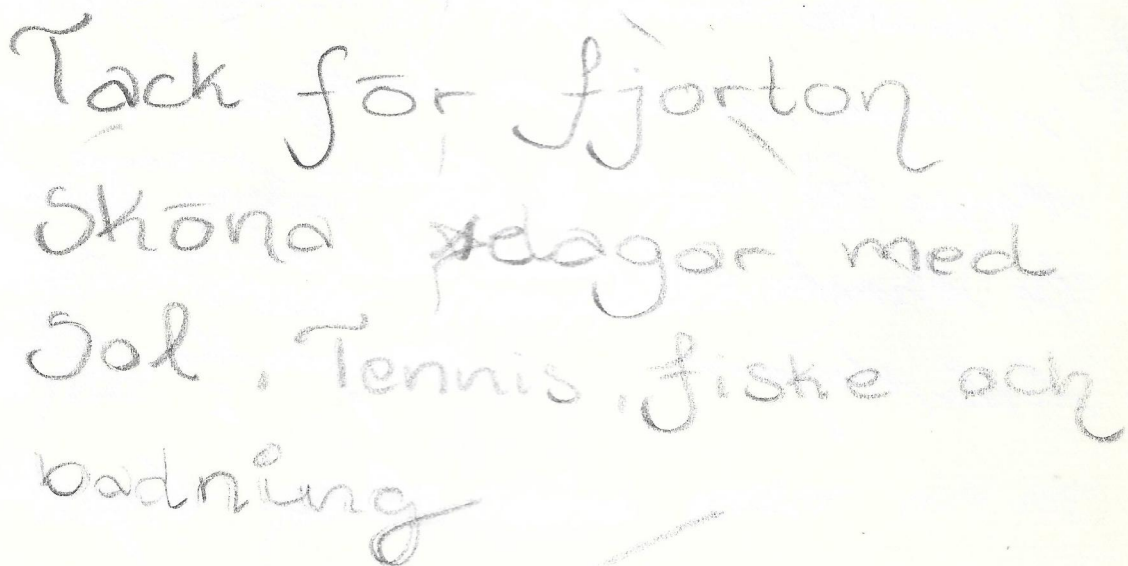 Tack för fjorton
sköna dagar med
sol, Tennis, fiske och
badning